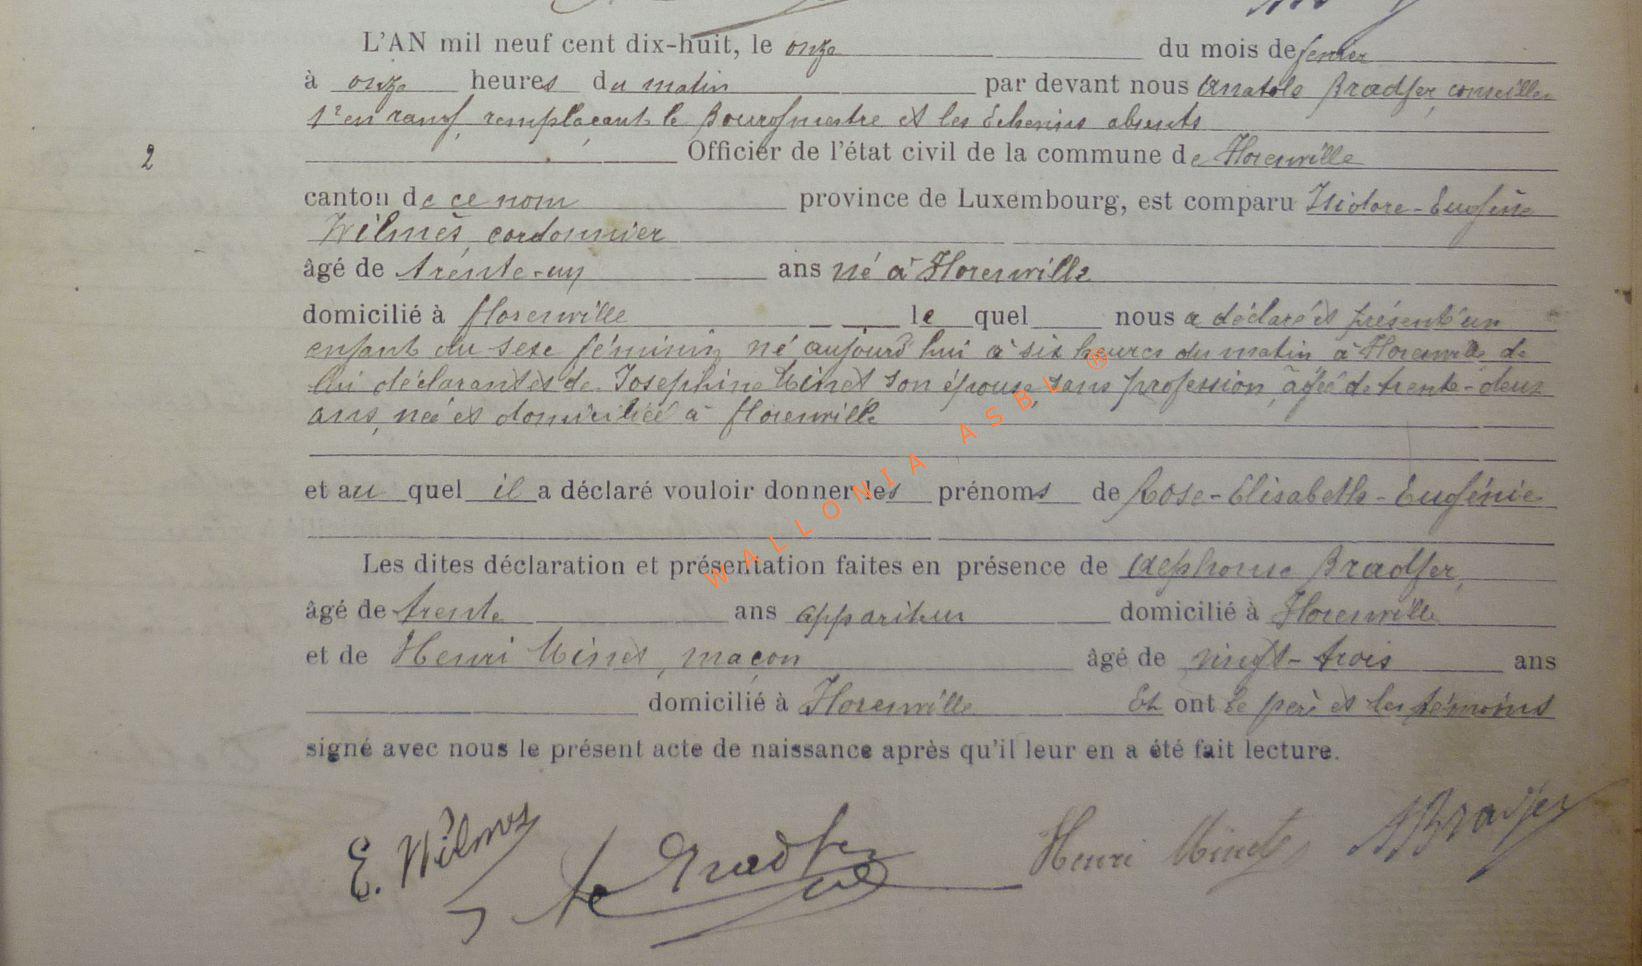 L'AN mil neuf cent dix-huit, le onze du mois de fevrier
à onze heures du matin par devant nous Anatole Bradfer, conseiller
1r en rang, remplaçant le Bourgmestre et les Echevins absents
2 Officier de l'état civil de la commune de Florenville
canton de ce nom province de Luxembourg, est comparu Isidore-Eugène
Wilmès, cordonnier
âgé de trente-un ans né à Florenville
domicilié à Florenville le quel nous a déclaré et présenté un
enfant du sexe féminin né aujourd'hui à six heures du matin à Florenville de
lui déclarant et de Joséphine Minet son épouse, sans profession, âgée de trente-deux
ans, née et domiciliée à Florenville
et au quel il a déclaré vouloir donner les prénoms de Rose-Elisabeth-Eugénie
Les dites déclaration et présentation faites en présence de Alphonse Bradfer,
âgé de trente ans appariteur domicilié à Florenville
et de Henri Minet, maçon âgé de vingt-trois ans
domicilié à Florenville Et ont le père et les témoins
signé avec nous le présent acte de naissance après qu'il leur en a été fait lecture.
E. Wilmes Bradfer Henri Minet ABradfer
WALLONIA ASBL ®